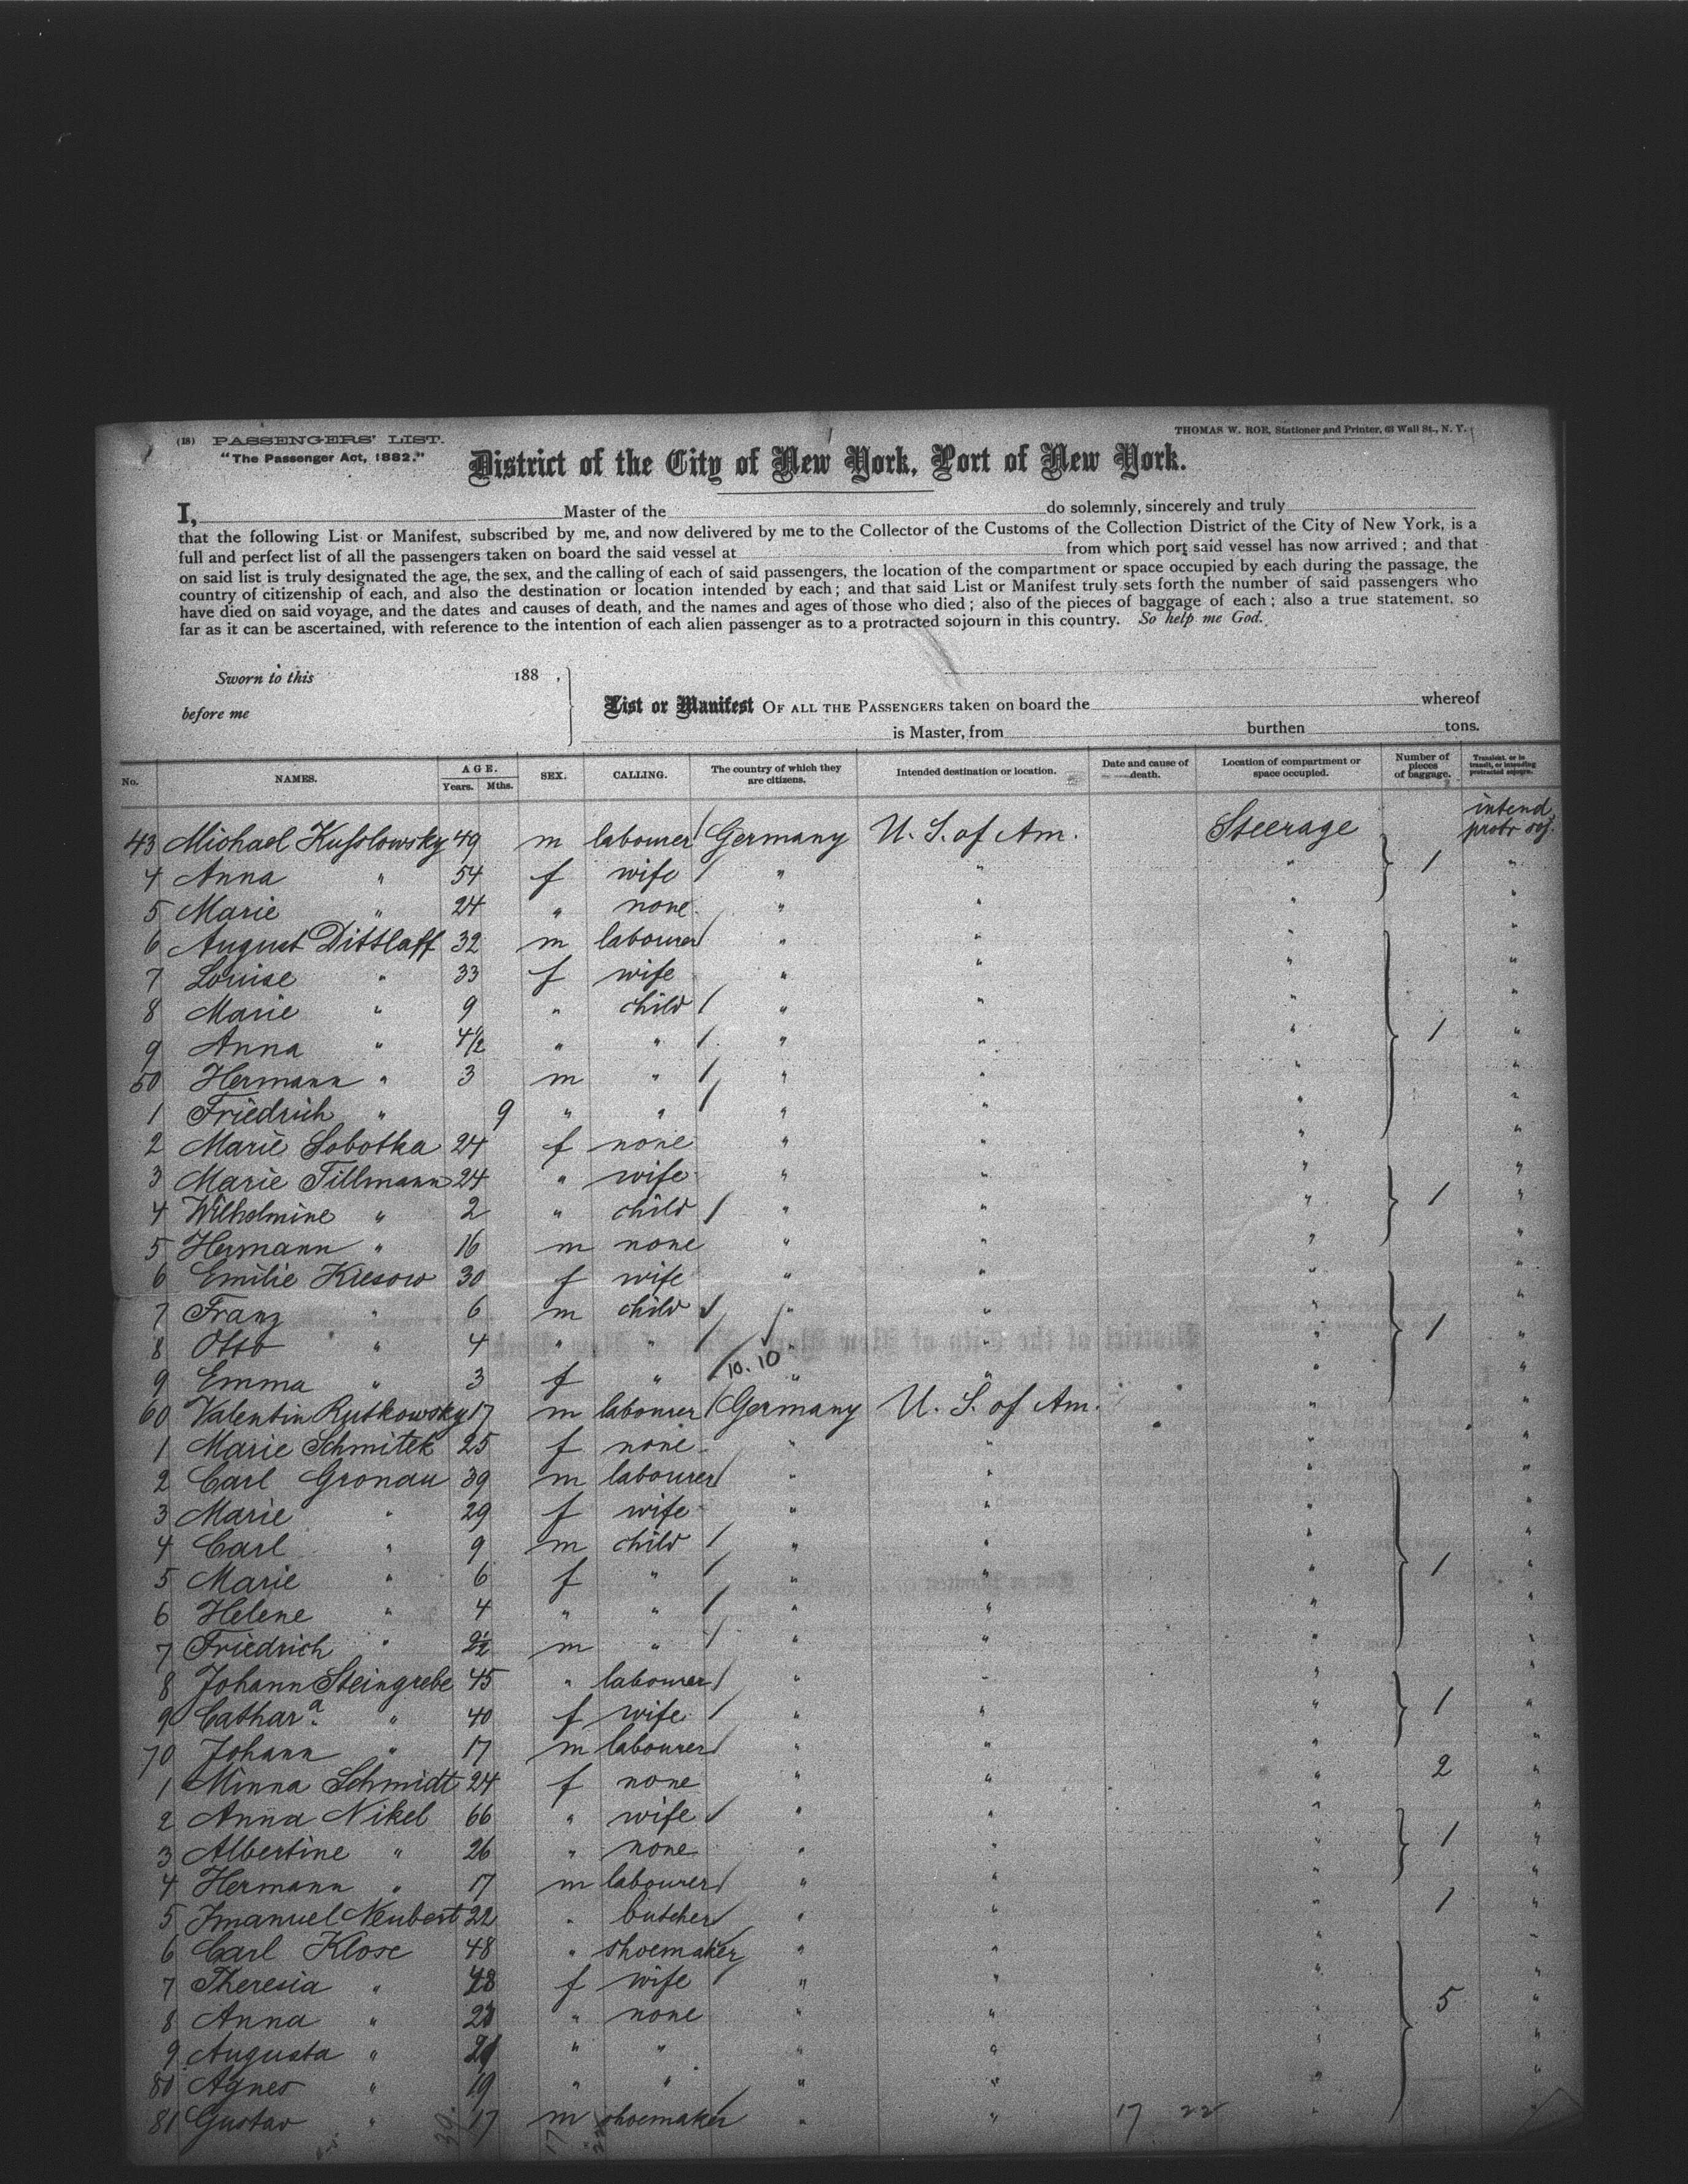 (18) PASSENGERS' LIST.
THOMAS W. ROE, Stationer and Printer, 63 Wall St., N. Y.
"The Passenger Act, 1882."
District of the City of New York, Port of New York.
I, Master of the do solemnly, sincerely and truly
that the following List or Manifest, subscribed by me, and now delivered by me to the Collector of the Customs of the Collection District of the City of New York, is a
full and perfect list of all the passengers taken on board the said vessel at from which port said vessel has now arrived; and that
on said list is truly designated the age, the sex, and the calling of each of said passengers, the location of the compartment or space occupied by each during the passage, the
country of citizenship of each, and also the destination or location intended by each; and that said List or Manifest truly sets forth the number of said passengers who
have died on said voyage, and the dates and causes of death, and the names and ages of those who died; also of the pieces of baggage of each; also a true statement, so
far as it can be ascertained, with reference to the intention of each alien passenger as to a protracted sojourn in this country. So help me God.
Sworn to this 188 ,
before me
List or Manifest OF ALL THE PASSENGERS taken on board the whereof
is Master, from burthen tons.
No. NAMES. AGE. Years. Mths. SEX. CALLING. The country of which they are citizens. Intended destination or location. Date and cause of death. Location of compartment or space occupied. Number of pieces of baggage. Transient, or in transit, or intending protracted sojourn.
43 Michael Kusslowsky 49 m labourer Germany U. S. of Am. Steerage intend protr soj.
4 Anna " 54 f wife " " " 1 "
5 Marie " 24 " none " " " "
6 August Dittlaff 32 m labourer " " " "
7 Louise " 33 f wife " " " "
8 Marie " 9 " child " " " "
9 Anna " 4½ " " " " " 1 "
50 Hermann " 3 m " " " " "
1 Friedrich " 9 " " " " " "
2 Marie Sobotka 24 f none " " " "
3 Marie Tillmann 24 " wife " " " "
4 Wilhelmine " 2 " child " " " 1 "
5 Hermann " 16 m none " " " "
6 Emilie Kiesow 30 f wife " " " "
7 Franz " 6 m child " " " "
8 Otto " 4 " " " " " 1 "
10.10
9 Emma " 3 f " " " " "
60 Valentin Rutkowsky 17 m labourer Germany U. S. of Am. " "
1 Marie Schmitek 25 f none " " " "
2 Carl Gronau 39 m labourer " " " "
3 Marie " 29 f wife " " " "
4 Carl " 9 m child " " " "
5 Marie " 6 f " " " " 1 "
6 Helene " 4 " " " " " "
7 Friedrich " 2½ m " " " " "
8 Johann Steingrebe 45 " labourer " " " "
9 Cathar.a " 40 f wife " " " 1 "
70 Johann " 17 m labourer " " " "
1 Minna Schmidt 24 f none " " " 2 "
2 Anna Nikel 66 " wife " " " "
3 Albertine " 26 " none " " " 1 "
4 Hermann " 17 m labourer " " " "
5 Imanuel Neubert 22 " butcher " " " 1 "
6 Carl Klose 48 " shoemaker " " " "
7 Theresia " 48 f wife " " " "
8 Anna " " none " " " 5 "
9 Augusta " " " " " " "
80 Agnes " 19 " " " " " "
81 Gustav " 17 m shoemaker " " 17 22 " "